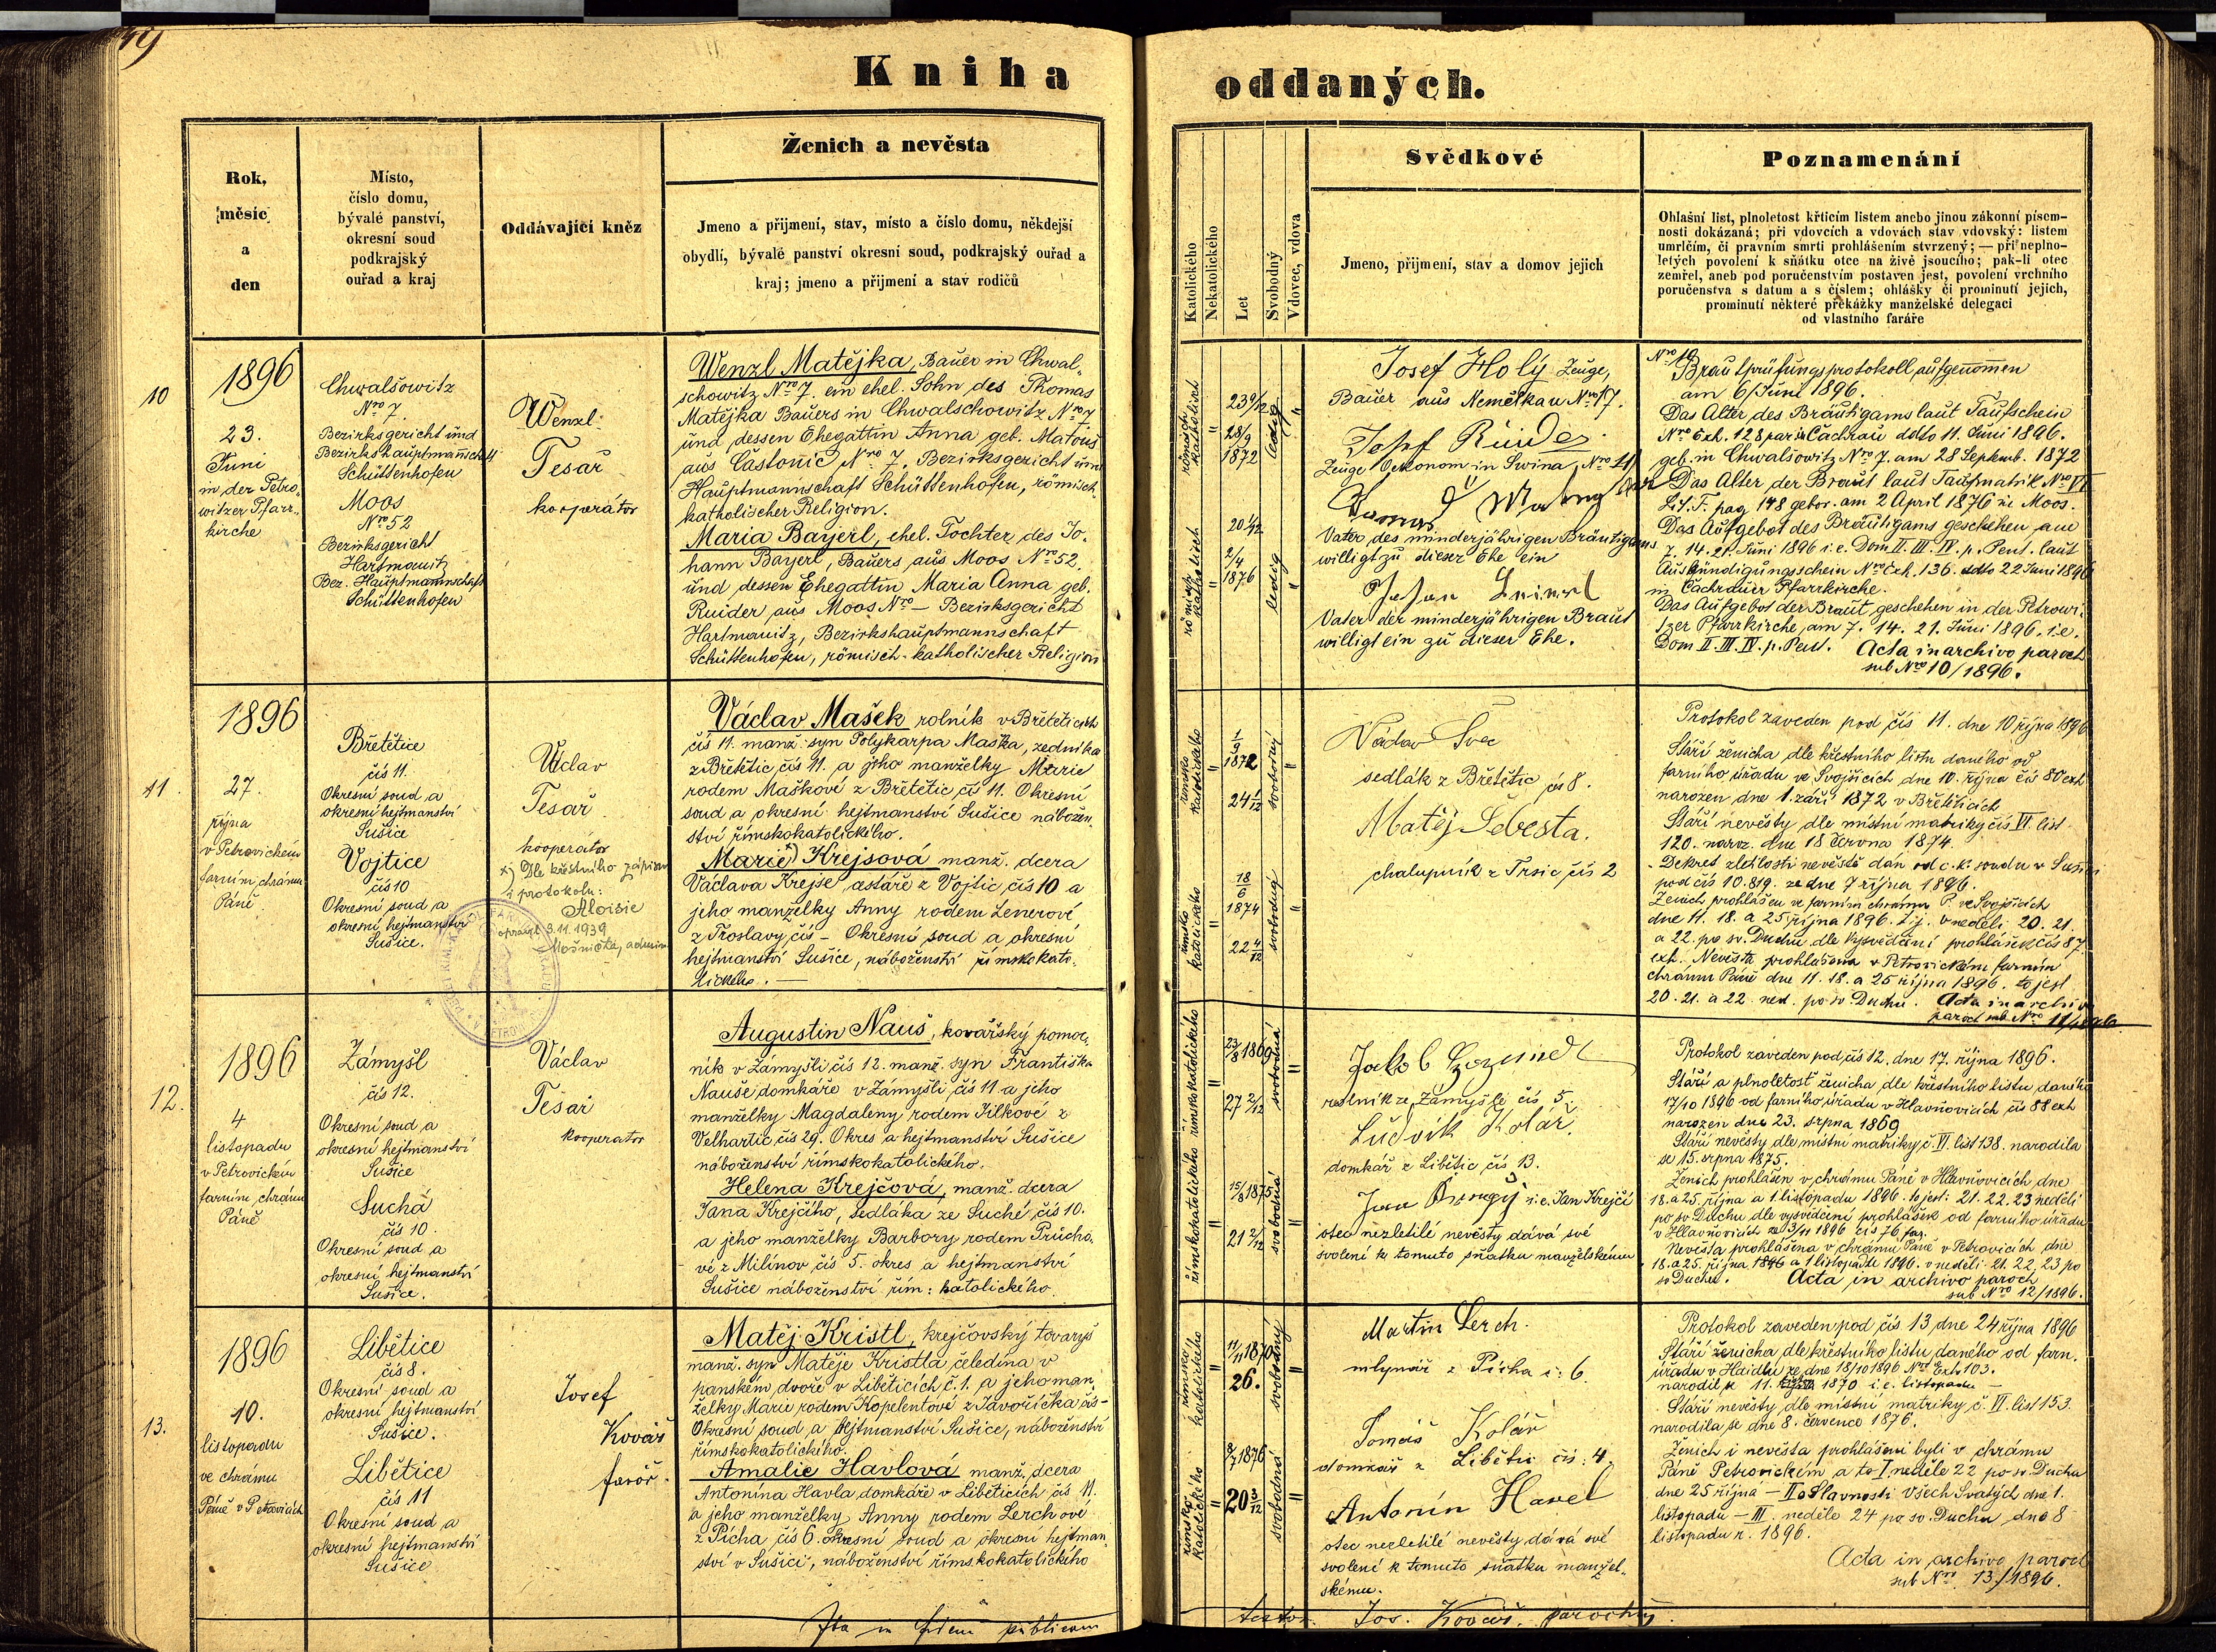 Kniha oddaných.
Rok,
měsíc
a
den
Místo,
číslo domu,
bývalé panství,
okresní soud
podkrajský
ouřad a kraj
Oddávající kněz
Ženich a nevěsta
Jmeno a přijmení, stav, místo a číslo domu, někdejší
obydlí, bývalé panství okresní soud, podkrajský ouřad a
kraj; jmeno a přijmení a stav rodičů
Katolického
Nekatolického
Let
Svobodný
Vdovec, vdova
Svědkové
Jmeno, přijmení, stav a domov jejich
Poznamenání
Ohlašní list, plnoletost křticím listem anebo jinou zákonní písem-
nosti dokázaná; při vdovcích a vdovách stav vdovský: listem
umrlčím, či pravním smrti prohlášením stvrzený; — při neplno-
letých povolení k sňátku otce na živě jsoucího; pak-li otec
zemřel, aneb pod poručenstvím postaven jest, povolení vrchního
poručenstva s datum a s číslem; ohlášky či prominutí jejich,
prominutí některé překážky manželské delegací
od vlastního faráře
10
1896
23.
Juni
in der Petro-
witzer Pfarr-
kirche
Chwalšowitz
Nro 7.
Bezirksgericht und
Bezirkshauptmannschaft
Schüttenhofen
Moos
Nro 52
Bezirksgericht
Hartmanitz
Bez. Hauptmannschaft
Schüttenhofen
Wenzl
Tesař
kooperátor
Wenzl Matějka, Bauer in Chwal-
schowitz Nro 7. ein ehel. Sohn des Thomas
Matějka Bauers in Chwalschowitz Nro 7
und dessen Ehegattin Anna geb. Matouš
aus Častonic Nro 7. Bezirksgericht und
Hauptmannschaft Schüttenhofen, römisch-
katholischer Religion.
Maria Bayerl, ehel. Tochter des Jo-
hann Bayerl, Bauers aus Moos Nro 52.
und dessen Ehegattin Maria Anna geb.
Ruider aus Moos Nro — Bezirksgericht
Hartmanitz, Bezirkshauptmannschaft
Schüttenhofen, römisch-katholischer Religion
römisch
katholisch
23 9/12
28/9
1872
ledig
römisch
katholisch
20 1/12
2/4
1876
ledig
Josef Holý Zeuge,
Bauer aus Nemelkau Nro 17.
Josef Ruider
Zeuge Oekonom in Swina, Nro 11
Vater des minderjährigen Bräutigams
willigt zu dieser Ehe ein
Vater der minderjährigen Braut
willigt ein zu dieser Ehe.
Nro 10
Brautprüfungsprotokoll aufgenommen
am 6/Juni 1896.
Das Alter des Bräutigams laut Taufschein
Nro Exh. 128 Čachrau ddto 11. Juni 1896.
geb. in Chwaliowitz Nro 7. am 28 Septemb. 1872
Das Alter der Braut laut Taufmatrik Nro VI
Lit. T. pag 148 gebor. am 2 April 1876 in Moos.
Das Aufgebot des Bräutigams geschehen am
7. 14. 21. Juni 1896 i.e. Dom II. III. IV. p. Pent. laut
Auskündigungsschein Nro Exh. 136. ddto 22 Juni 1896
in Čachrauer Pfarrkirche.
Das Aufgebot der Braut geschehen in der Petrowi-
tzer Pfarrkirche, am 7. 14. 21. Juni 1896. i.e.
Dom II. III. IV. p. Pent. Acta in archivo paroch
sub Nro 10/1896.
11.
1896
27.
října
v Petrovickém
farním chrámu
Páně
Břetětice
čís 11.
Okresní soud a
okresní hejtmanství
Sušice
Vojtice
čís 10
Okresní soud a
okresní hejtmanství
Sušice.
Václav
Tesař
kooperátor
x) Dle křestního zápisu
i protokolu:
Aloisie
opravil 3.11.1939
Václav Mašek rolník v Břetěticích
čís 11. manž. syn Polykarpa Maška, zedníka
z Břetětic čís 11. a jeho manželky Marie
rodem Maškové z Břetětic čís 11. Okresní
soud a okresní hejtmanství Sušice nábožen-
ství římskokatolického.
Marie x) Krejsová manž. dcera
Václava Krejse cestáře z Vojtic, čís 10 a
jeho manželky Anny rodem Lenerové
z Froslavy čís — Okresní soud a okresní
hejtmanství Sušice, náboženství římskokato-
lického. —
římsko
katolického
1/9
1872
24 1/12
svobodný
římsko
katolického
18/6
1874
22 4/12
svobodná
Václav Švec
sedlák z Břetětic čís 8.
Matěj Šebesta.
chalupník z Trsic čís 2
Protokol zaveden pod čís 11. dne 10 října 1896
Stáří ženicha dle křestního listu daného od
farního úřadu ve Svojšicích dne 10. října čís 80 exh
narozen dne 1. září 1872 v Břetěticích
Stáří nevěsty dle místní matriky čís VI. list
120. naroz. dne 18 Června 1874.
Dekret zletilosti nevěstě dán od c. k. soudu v Sušici
pod čís 10.819. ze dne 7 října 1896.
Ženich prohlášen ve farním chrámu P. ve Svojšicích
dne 11. 18. a 25 října 1896. t.j. v neděli 20. 21.
a 22. po sv. Duchu dle vysvědčení prohlášek čís 87
exh. Nevěsta prohlášena v Petrovickém farním
chrámu Páně dne 11. 18. a 25 října 1896. to jest
20. 21. a 22. ned. po sv. Duchu. Acta in archivo
paroch sub Nro 11/1896
12.
1896
4
listopadu
v Petrovickém
farním chrámu
Páně
Zámyšl
čís 12.
Okresní soud a
okresní hejtmanství
Sušice
Suchá
čís 10.
Okresní soud a
okresní hejtmanství
Sušice.
Václav
Tesař
kooperator
Augustin Nauš, kovářský pomoc-
ník v Zámyšli čís 12. manž. syn Františka
Nauše domkáře v Zámyšli čís 11 a jeho
manželky Magdaleny rodem Jílkové z
Velhartic čís 29. Okres a hejtmanství Sušice
náboženství římskokatolického.
Helena Krejčová, manž. dcera
Jana Krejčího, sedláka ze Suché, čís 10.
a jeho manželky Barbory rodem Průcho-
vé z Milínov čís 5. okres a hejtmanství
Sušice náboženství řím: katolického.
římskokatolického
23/8 1869
27 2/12
svobodná
římskokatolického
15/8 1875
21 2/12
svobodná
Jakob
rolník ze Zámyšle čís 5.
Ludvík Kolář.
domkář z Libětic čís 13.
Jan i.e. Jan Krejčí
otec nezletilé nevěsty dává své
svolení k tomuto sňatku manželskému
Protokol zaveden pod čís 12. dne 17. října 1896.
Stáří a plnoletosť ženicha dle křestního listu daného
17/10 1896 od farního úřadu v Hlavňovicích čís 88 exh
narozen dne 23. srpna 1869
Stáří nevěsty dle místní matriky č. VI. list 138. narodila
se 15. srpna 1875.
Ženich prohlášen v chrámu Páně v Hlavňovicích dne
18. a 25. října a 1. listopadu 1896. to jest: 21. 22. 23 neděli
po sv Duchu dle vysvědčení prohlášek od farního úřadu
v Hlavňovicích ze 3/11 1896 čís 76 far.
Nevěsta prohlášena v chrámu Páně v Petrovicích dne
18. a 25. října 1896 a 1 listopadu 1896. v neděli 21. 22. 23 po
sv Duchu. Acta in archivo paroch
sub Nro 12/1896.
13.
1896
10.
listopadu
ve chrámu
Páně v Petrovicích
Libětice
čís 8.
Okresní soud a
okresní hejtmanství
Sušice.
Libětice
čís 11
Okresní soud a
okresní hejtmanství
Sušice
Josef
Kovář
farář.
Matěj Kristl, krejčovský tovaryš
manž. syn Matěje Kristla čeledína v
panském dvoře v Liběticích č. 1. a jeho man-
želky Marie rodem Kopelentové z Javoříčka čís —
Okresní soud a hejtmanství Sušice, náboženství
římskokatolického.
Amalie Havlová manž. dcera
Antonína Havla, domkáře v Liběticích čís 11.
a jeho manželky Anny rodem Lerchové
z Picha čís 6 okresní soud a okresní hejtman-
ství v Sušici, náboženství římskokatolického
římsko
katolického
11/11 1870
26.
svobodný
římsko
katolického
8/7 1876
20 3/12
svobodná
Martin Lerch.
mlynář z Picha č: 6.
Tomáš Kolář
domkář z Libětic čís: 4.
Antonín Havel
otec nezletilé nevěsty dává své
svolení k tomuto sňatku manžel-
skému.
Protokol zaveden pod čís 13, dne 24 října 1896
Stáří ženicha dle křestního listu daného od farn.
úřadu v Haidlu ze dne 18/10 1896 Nro Exh 103.
narodil se 11. 1870 i.e. listopadu —
Stáří nevěsty dle místní matriky č. VI. list 153
narodila se dne 8. července 1876.
Ženich i nevěsta prohlášeni byli v chrámu
Páně Petrovickém a to I neděle 22 po sv. Duchu
dne 25 října — II o Slavnosti Všech Svatých dne 1.
listopadu — III. neděle 24 po sv. Duchu dne 8
listopadu r. 1896.
Acta in archivo paroch
sub Nro 13/1896.
Ita in fidem publicam
testor Jos. Kovář, parochus.